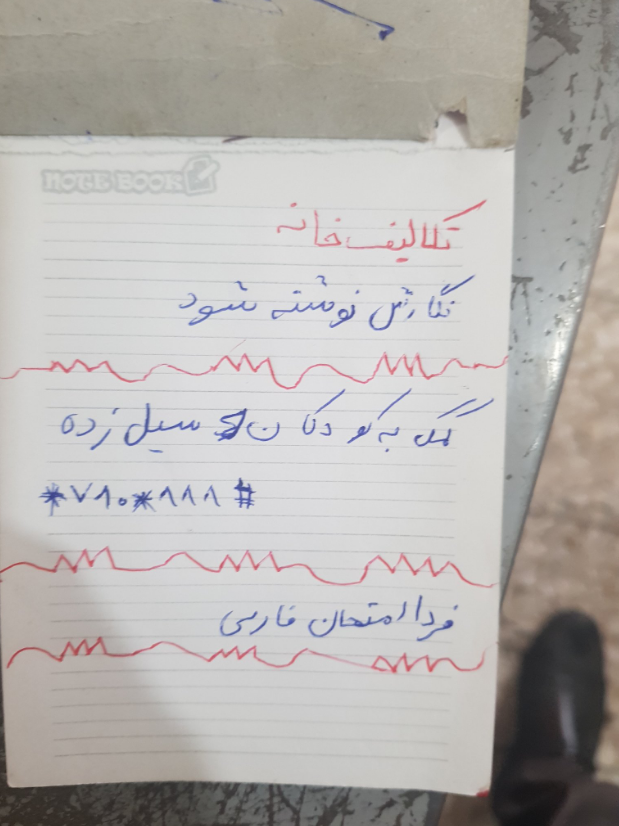 NOTE BOOK
تکالیف خانه
نگارش نوشته شود
کمک به کودکان سیل زده
*۷۸۰*۸۸۸#
فردا امتحان فارسی